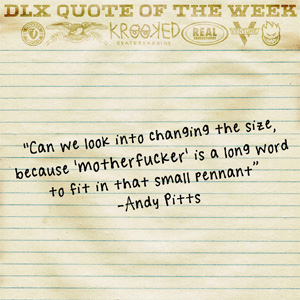 DLX QUOTE OF THE WEEK
KROOKED
SKATEBOARDING
REAL
"Can we look into changing the size,
because 'motherfucker' is a long word
to fit in that small pennant"
-Andy Pitts